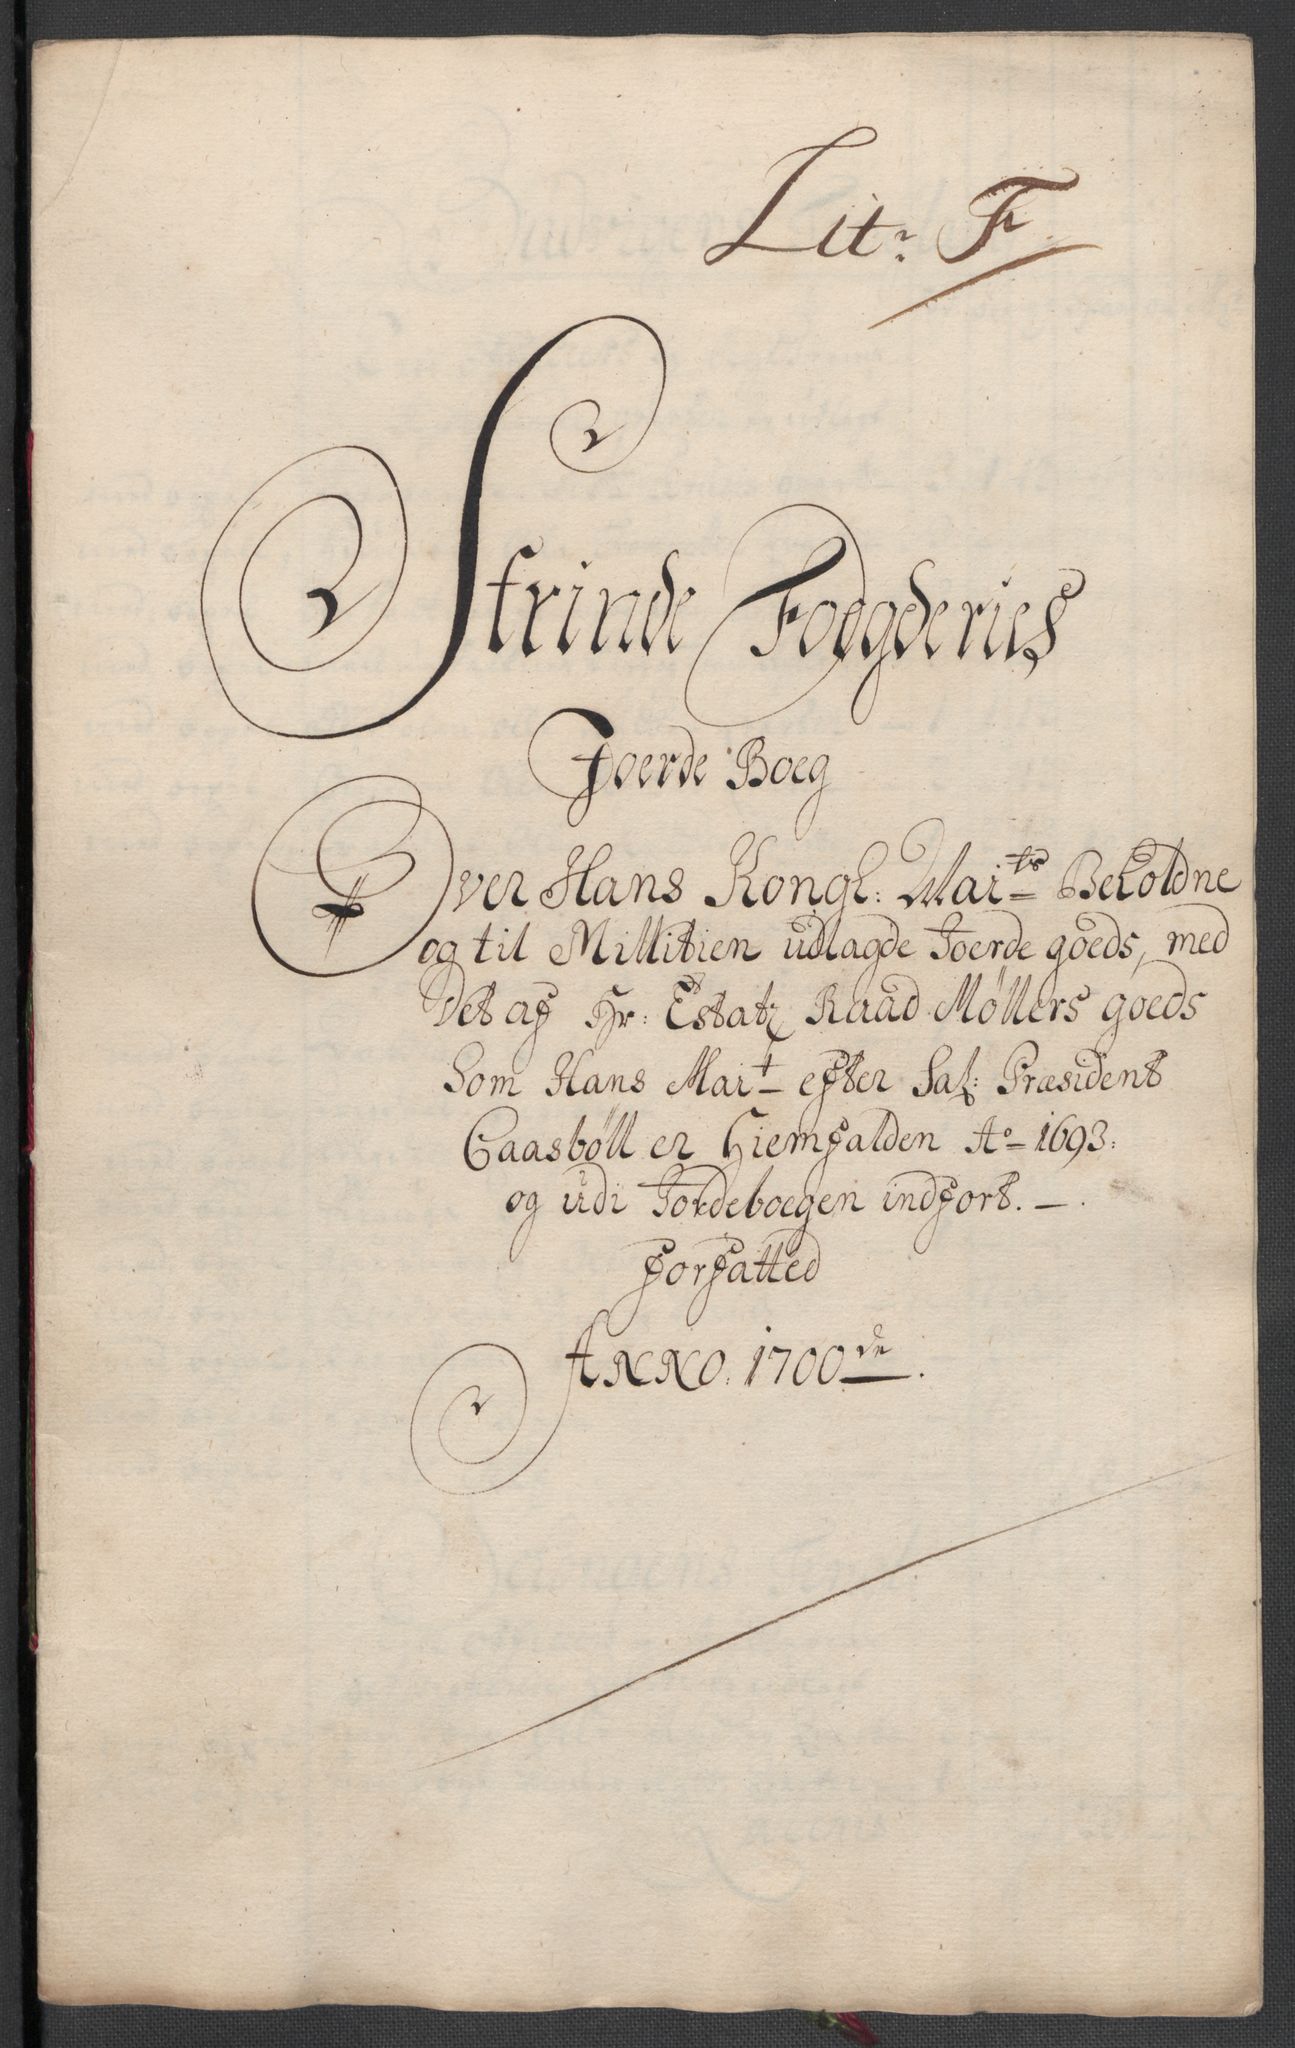 Lit: F
Strinde Fodgderies
Joerde Boeg
Over Hans Kongl: Mai^ts Beholdne
og til Millitien udlagde Joerde goeds, med
det af Hr: Estatz Raad Møllers goeds
Som Hans Mai^t efter Sal: Præsident
Caasbøll er hiemfalden A^o 1693:
og udi Jordeboegen indført. —.
forfatted
ANNO. 1700^de.